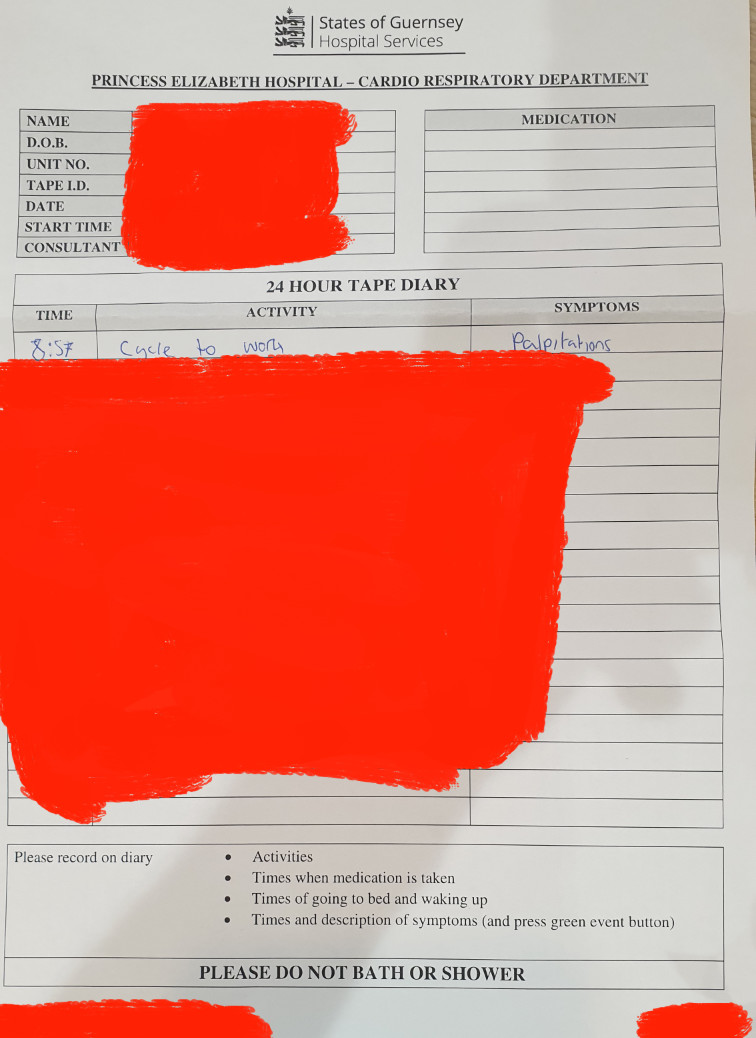 States of Guernsey
Hospital Services
PRINCESS ELIZABETH HOSPITAL – CARDIO RESPIRATORY DEPARTMENT
NAME
D.O.B.
UNIT NO.
TAPE I.D.
DATE
START TIME
CONSULTANT
MEDICATION
24 HOUR TAPE DIARY
TIME ACTIVITY SYMPTOMS
8:57 Cycle to work Palpitations
Please record on diary
• Activities
• Times when medication is taken
• Times of going to bed and waking up
• Times and description of symptoms (and press green event button)
PLEASE DO NOT BATH OR SHOWER